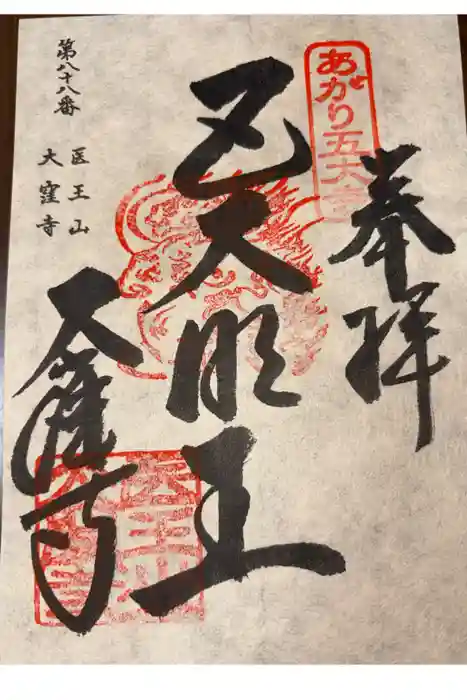 奉拝
あがり五大寺
五大明王
大窪寺
第八十八番
医王山
大窪寺